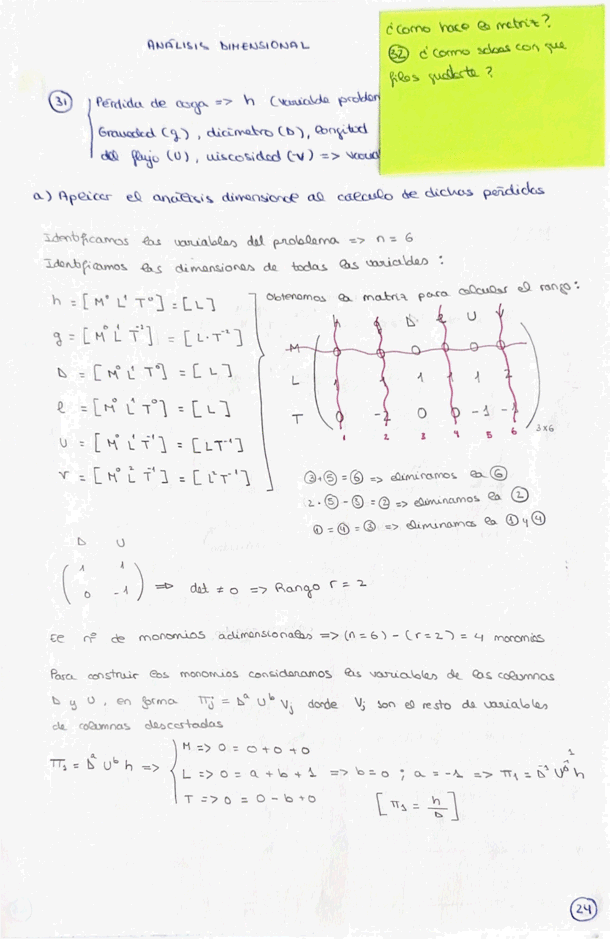 ANÁLISIS DIMENSIONAL
¿Como hace la matriz?
32 ¿Como sabes con que
filas quedarte?
31 Pérdida de carga => h (variable problem
Gravedad (g), diámetro (D), longitud
del flujo (U), viscosidad (ν) => varia
a) Aplicar el análisis dimensional al cálculo de dichas pérdidas
Identificamos las variables del problema => n = 6
Identificamos las dimensiones de todas las variables:
h = [M⁰ L¹ T⁰] = [L]
g = [M⁰ L¹ T⁻²] = [L·T⁻²]
D = [M⁰ L¹ T⁰] = [L]
l = [M⁰ L¹ T⁰] = [L]
U = [M⁰ L¹ T⁻¹] = [LT⁻¹]
ν = [M⁰ L² T⁻¹] = [L²T⁻¹]
Obtenemos la matriz para calcular el rango:
h g D l U ν
M 0 0 0 0 0 0
L 1 1 1 1 1 2
T 0 -2 0 0 -1 -1
1 2 3 4 5 6
3x6
③+⑤=⑥ => eliminamos la ⑥
2·⑤-③=② => eliminamos la ②
①=④=③ => eliminamos la ① y ④
D U
1 1
0 -1 => det ≠ 0 => Rango r = 2
El nº de monomios adimensionales => (n=6) - (r=2) = 4 monomios
Para construir los monomios consideramos las variables de las columnas
D y U, en forma πj = Dᵃ Uᵇ Vj donde Vj son el resto de variables
de columnas descartadas
π₁ = Dᵃ Uᵇ h =>
M => 0 = 0 + 0 + 0
L => 0 = a + b + 1 => b = 0 ; a = -1 => π₁ = D⁻¹ U⁰ h
1
T => 0 = 0 - b + 0
[π₁ = h/D]
24